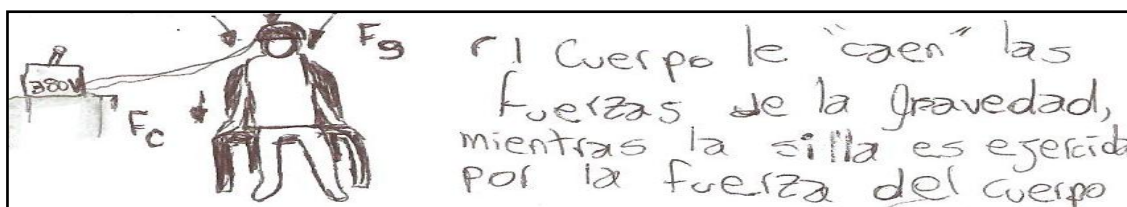 Fg
380V
Fc
l Cuerpo le "caen" las
fuerzas de la gravedad,
mientras la silla es ejercida
por la fuerza del cuerpo